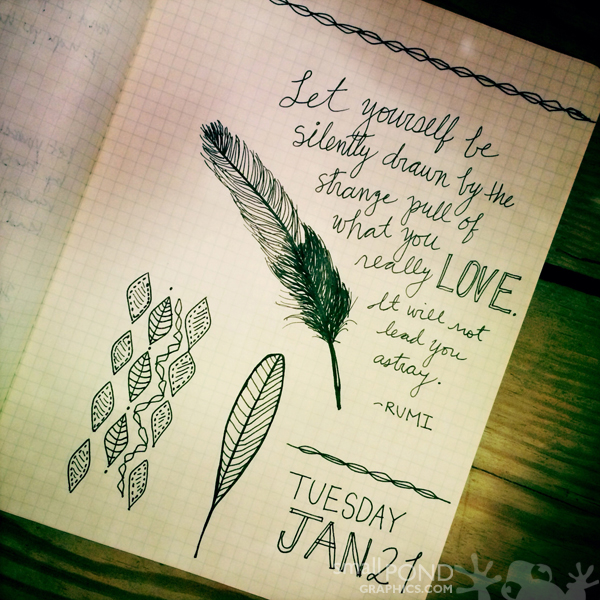 Let yourself be
silently drawn by the
strange pull of
what you
really LOVE.
It will not
lead you
astray.
~RUMI
TUESDAY
JAN 21
smallPOND
GRAPHICS.COM